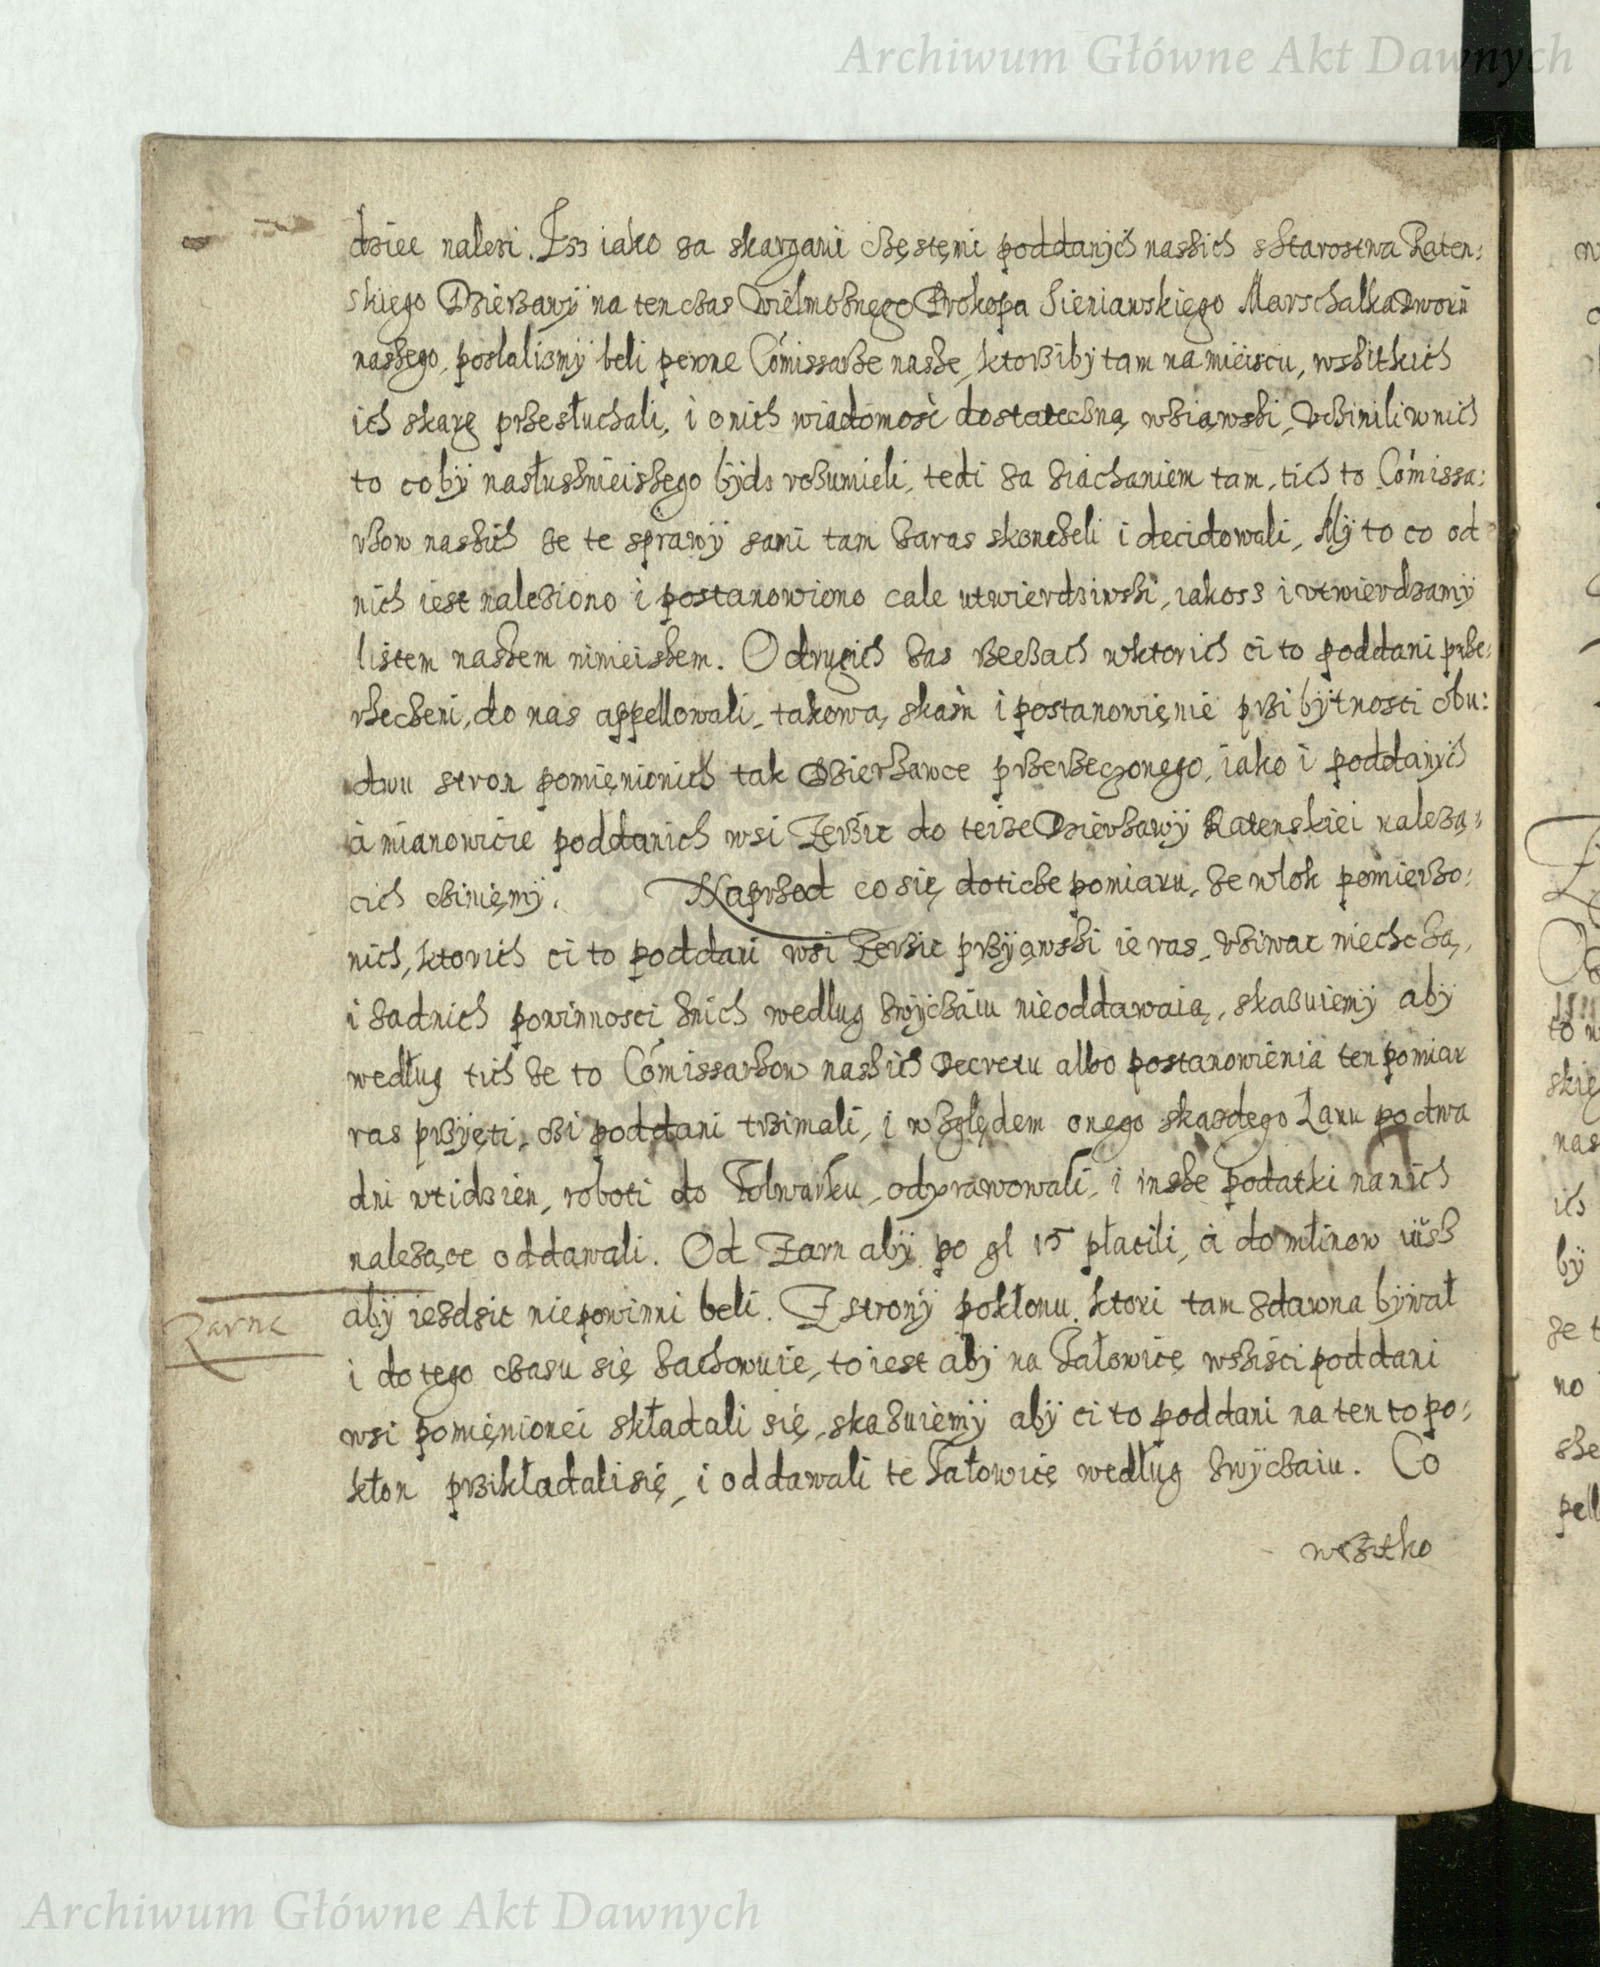 Archiwum Główne Akt Dawnych
dziec nalezi. Isz iako za skargami częstemi poddanÿch naszich z Starostwa Raten:
skiego Dzierzawÿ na ten czas Wielmoznego Prokopa Sieniawskiego Marschalka Dworu
naszego, poslalismÿ beli pewne Comissarze nasze, ktorzibÿ tam na mieiscu, wszitkich
ich skarg przesłuchali, i o nich wiadomość dostateczną wziąwszi, Vczinili w nich
to cobÿ nasłusznieiszego bÿdz rozumieli, tedi za ziachaniem tam, tich to Comissa:
rzow naszich ze te sprawÿ sami tam zaras skonczeli i decidowali, Mÿ to co od
nich iest naleziono i postanowiono cale utwierdziwszi, iakosz i utwierdzamÿ
listem naszem ninieiszem. O drugich zas rzeczach w ktorich ci to poddani prze:
rzeczeni, do nas appellowali, takową skazn i postanowięnie przi bÿtnosci obu:
dwu stron pomięnionich tak Dzierzawce przerzeczonego, iako i poddanÿch
à mianowicie poddanich wsi Zerzic do teize Dzierzawÿ Ratenskiei nalezą:
cich cziniemÿ. Naprzod co się doticze pomiaru, ze włok pomierzo:
nich, ktorich ci to poddani wsi Zerzic przÿąwszi ie ras, uziwac niechczą,
i zadnich powinnosci znich wedlug zwÿczaiu nieoddawaią, skazuiemÿ abÿ
według tich ze to Comissarzow naszich Decretu albo postanowienia ten pomiar
ras przÿęti, ci poddani trzimali, i względem onego skazdego Lanu po dwa
dni w tidzien, roboti do Folwarku, odprawowali, i insze podatki na nich
nalezące oddawali. Od Zarn abÿ po gl 15 płacili, à do młinow iusz
Zarna
abÿ iezdzic niepowinni beli. Z stronÿ pokłonu, ktori tam zdawna bÿwał
i do tego czasu się zachowuie, to iest abÿ na Iałowicę wsziści poddani
wsi pomięnionei składali się, skazuiemÿ abÿ ci to poddani na ten to po:
kłon przikładali się, i oddawali te Iałowicę według zwÿczaiu. Co
wszitko
Archiwum Główne Akt Dawnych